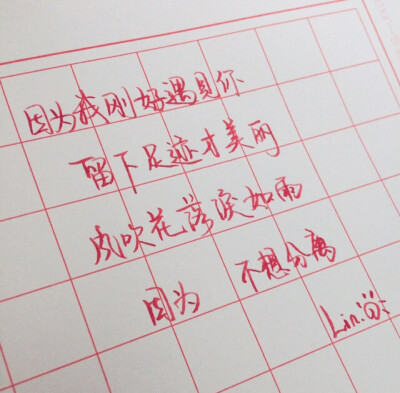 因为我刚好遇见你
留下足迹才美丽
风吹花落泪如雨
因为 不想分离
Lin.